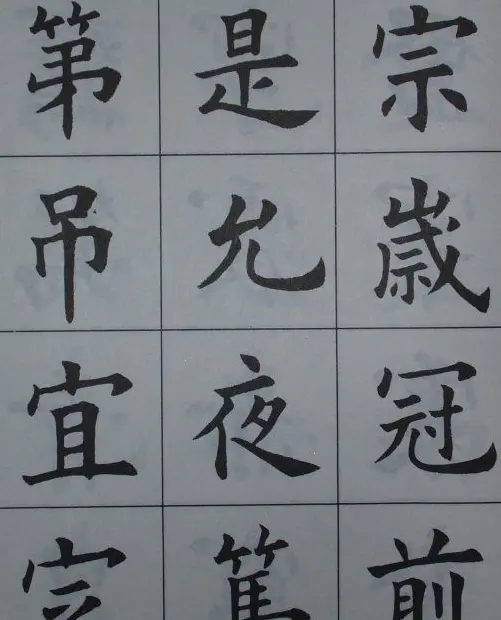 宗歳冠前
是允夜篤
第吊宜